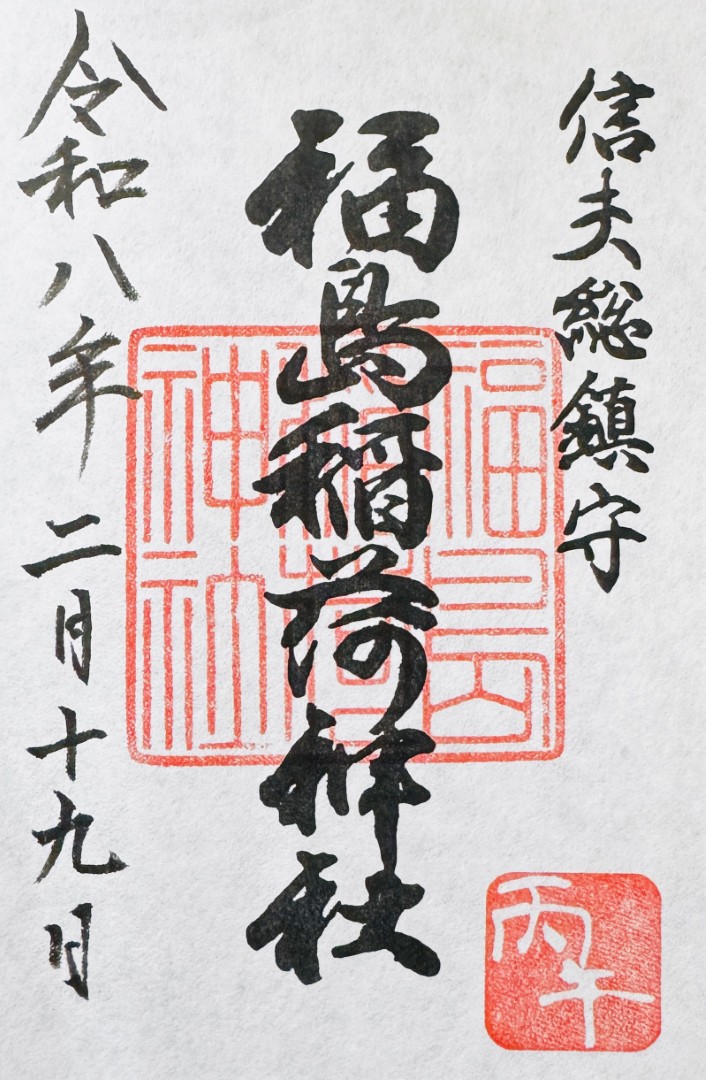 信夫総鎮守
福島稲荷神社
福島稲荷神社
令和八年二月十九日
丙午